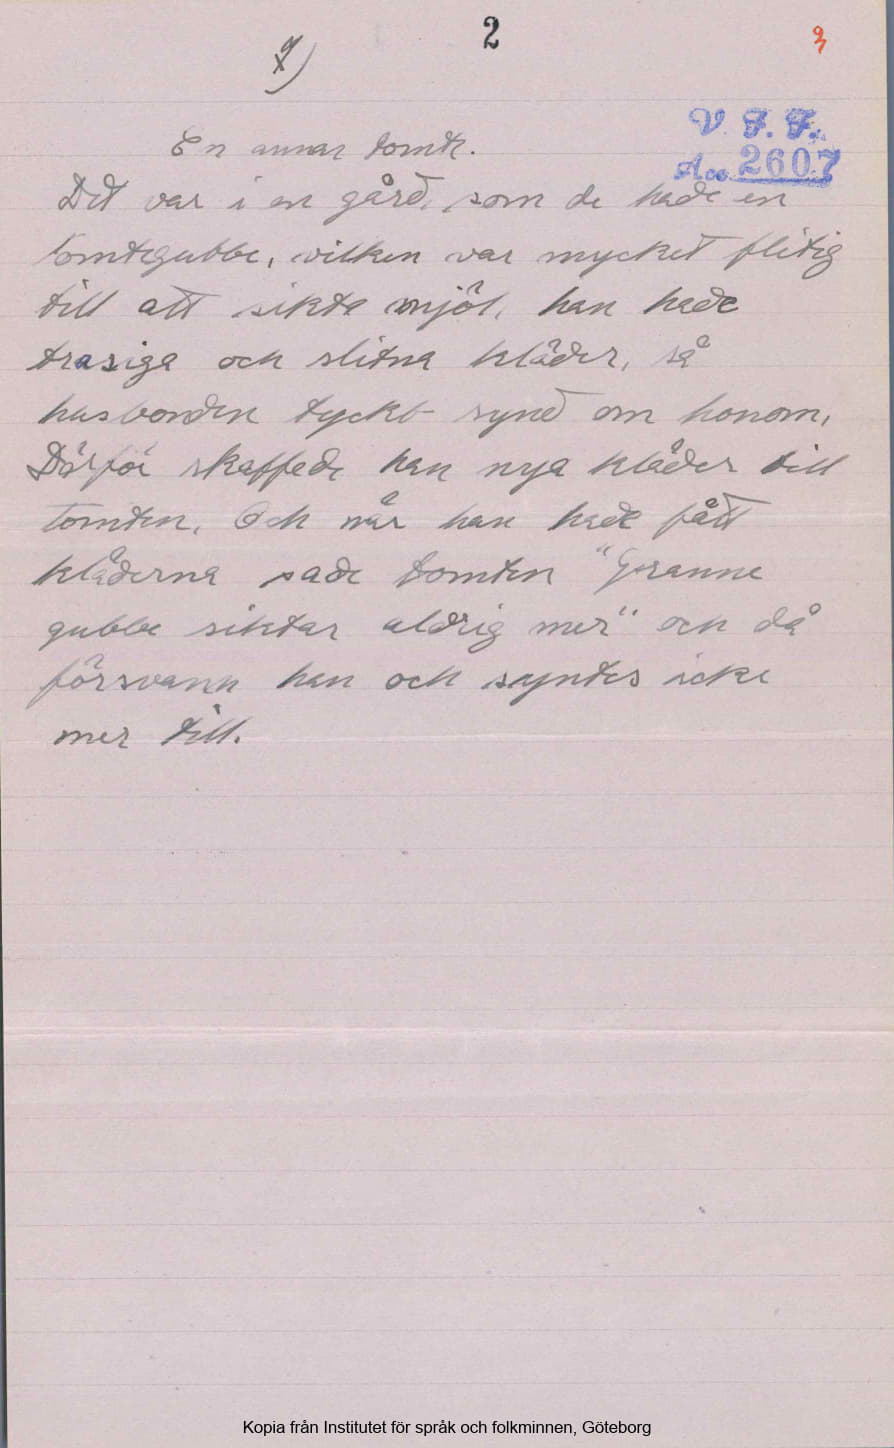 2
3
V. F. F.
Acc 2607
En annan tomte.
Det var i en gård, som de hade en
tomtegubbe, vilken var mycket flitig
till att sikta mjöl, han hade
trasiga och slitna kläder, så
husbonden tyckte synd om honom,
Därför skaffade han nya kläder till
tomten. Och när han hade fått
kläderna sade tomten "Granne
gubbe siktar aldrig mer" och då
försvann han och syntes icke
mer till.
Kopia från Institutet för språk och folkminnen, Göteborg